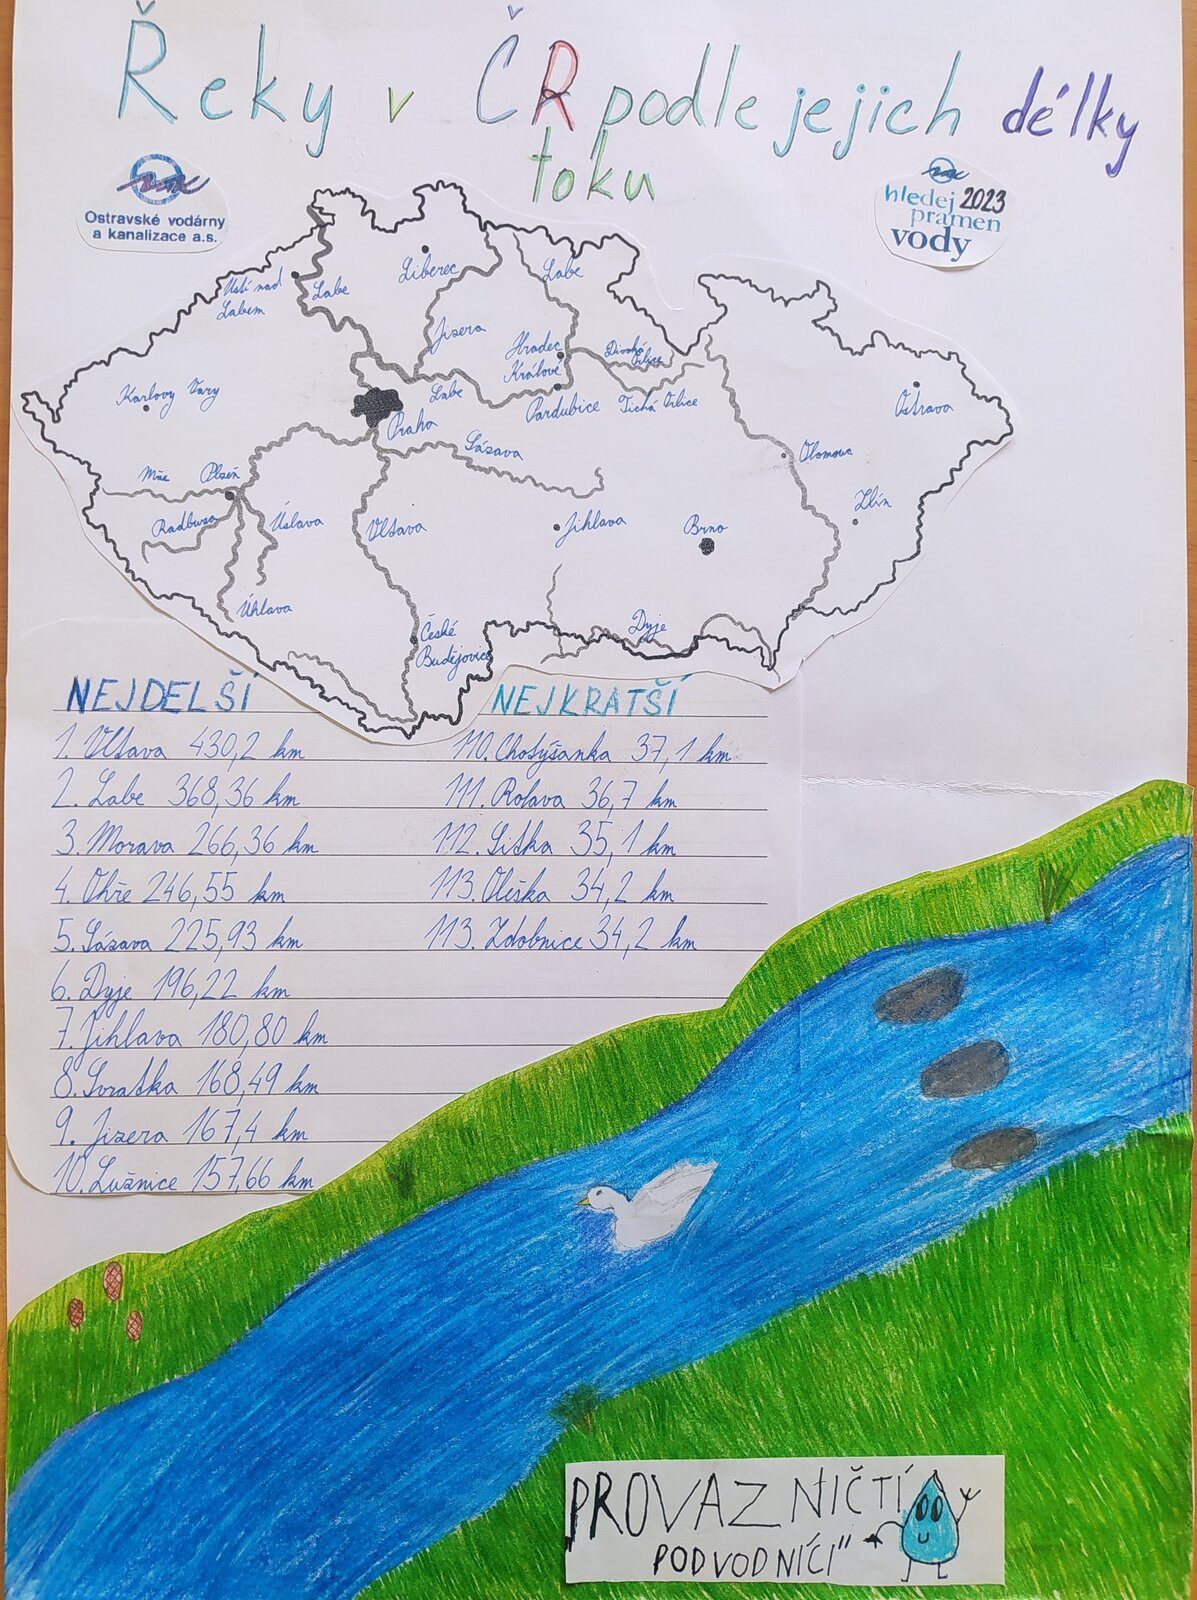 Řeky v ČR podle jejich délky
toku
Ostravské vodárny
a kanalizace a.s.
hledej 2023
pramen
vody
Ústí nad
Labem
Labe
Liberec
Labe
Jizera
Hradec
Králové
Divoká
Orlice
Karlovy Vary
Labe
Pardubice
Tichá Orlice
Ostrava
Praha
Sázava
Olomouc
Mže
Plzeň
Radbuza
Úslava
Vltava
Jihlava
Brno
Zlín
Úhlava
České
Budějovice
Dyje
NEJDELŠÍ
1. Vltava 430,2 km
2. Labe 368,36 km
3. Morava 266,36 km
4. Ohře 246,55 km
5. Sázava 225,93 km
6. Dyje 196,22 km
7. Jihlava 180,80 km
8. Svratka 168,49 km
9. Jizera 167,4 km
10. Lužnice 157,66 km
NEJKRATŠÍ
110. Chotýšanka 37,1 km
111. Rolava 36,7 km
112. Litka 35,1 km
113. Oleška 34,2 km
113. Zdobnice 34,2 km
PROVAZNIČTÍ
PODVODNÍCI"